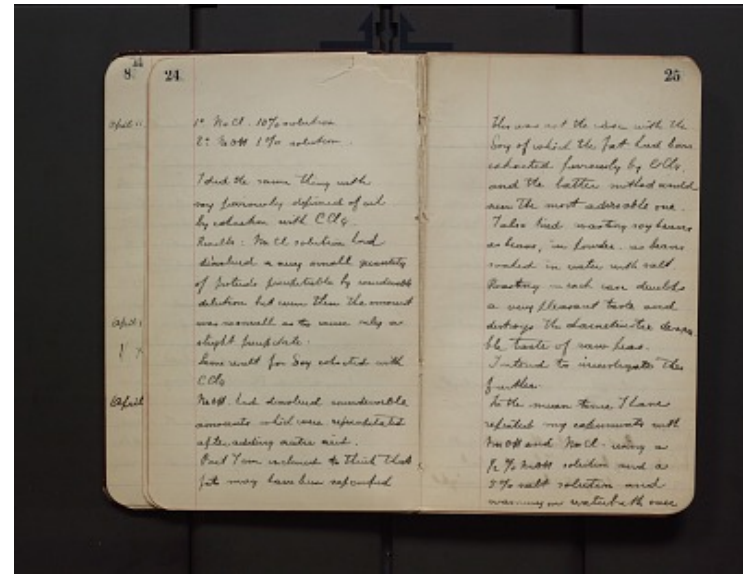 8
24
April 11
1º NaCl. 10% solution
2º NaOH 1% solution.
I did the same thing with
soy previously deprived of oil
by extraction with CCl4.
Results: NaCl solution had
dissolved a very small quantity
of proteids precipitable by considerable
dilution but even then the amount
was so small as to cause only a
slight precipitate.
Same result for Soy extracted with
CCl4
NaOH had dissolved considerable
amounts which were reprecipitated
after adding acid.
But I am inclined to think that
fat may have been saponified
April
April
25
This was not the case with the
Soy of which the fat had been
extracted previously by CCl4.
and the latter method would
seem the most advisable one.
I also tried roasting soy beans
as beans, in powder. as beans
soaked in water with salt
Roasting in each case develops
a very pleasant taste and
destroys the characteristic
ble taste of raw bean.
I intend to investigate this
further.
In the mean time, I have
repeated my experiments with
NaOH and NaCl. using a
1/2 % NaOH solution and a
2% salt solution and
warming on waterbath over